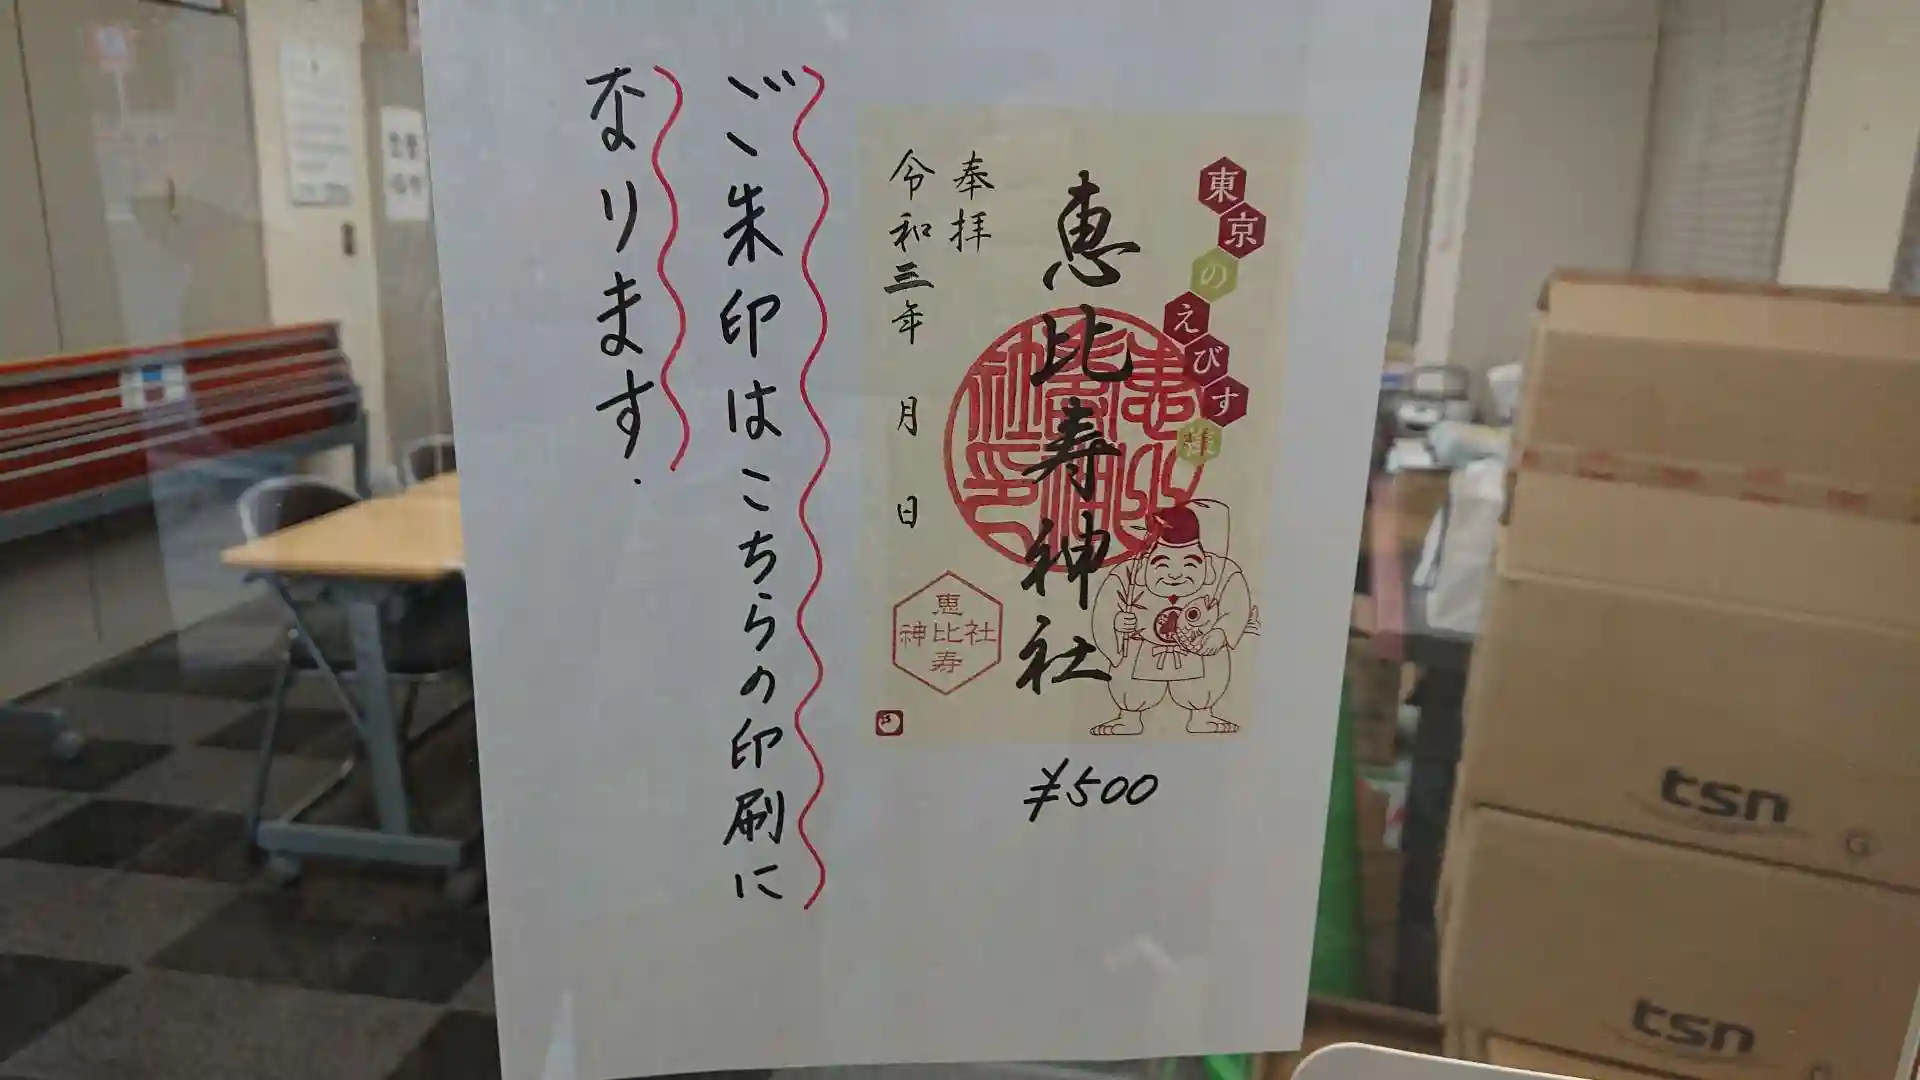 東京のえびす様
恵比寿神社
奉拝
令和三年 月 日
恵比寿神社
¥500
ご朱印はこちらの印刷に
なります.
tsn
G
tsn